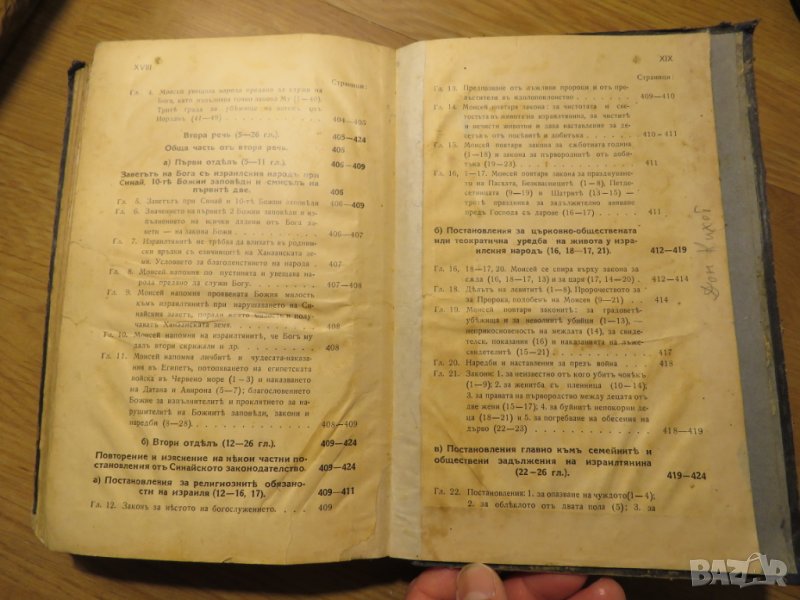 XVIII
Страници:
Гл. 4. Моисей увещава народа предано да служи на
Бога, като изпълнява точно закона Му (1—40).
Трите града за убежища на изтокъ отъ
Иорданъ (41—49) . . . . . . . . 404—405
Втора речь (5—26 гл.). 405—424
Обща часть отъ втора речь. 405
а) Първи отдѣлъ (5—11 гл.). 405—409
Заветътъ на Бога съ израилския народъ при
Синай, 10-тѣ Божии заповѣди и смисълъ на
първитѣ две. 405
Гл. 5. Заветътъ при Синай и 10-тѣ Божии заповѣди 405—406
Гл. 6. Значението на първитѣ 2 Божии заповѣди и
изпълнението на всички дадени отъ Бога
завети — на закона Божи . . . . 406—407
Гл. 7. Израилтянитѣ не трѣбва да влизатъ въ роднин-
ски връзки съ езичницитѣ на Ханаанската зе-
мя. Условието за благоденствието на народа . 407
Гл. 8. Моисей напомня по пустинята и увещава на-
рода предано да служи Богу. . . . 407—408
Гл. 9. Моисей напомня проявената Божия милость
къмъ израилтянитѣ при нарушаването на Си-
найския заветъ, поради която милость и полу-
чаватъ Ханаанската земя. . . . 408
Гл. 10. Моисей напомня на израилтянитѣ, че Богъ му
далъ втори скрижали и др. . . . 408
Гл. 11. Моисей напомня личбитѣ и чудесата-наказания
въ Египетъ, потопяването на египетската
войска въ Червено море (1—3) и наказването
на Датана и Авирона (5—7); благословението
Божие за изпълнителитѣ и проклятието за на-
рушителитѣ на Божиитѣ заповѣди, закони и
наредби (8—28). . . . 408—409
б) Втори отдѣлъ (12—26 гл.). 409—424
Повторение и изяснение на нѣкои частни по-
становления отъ Синайското законодателство. 409—424
а) Постановления за религиознитѣ обязано-
сти на израиля (12—16, 17). 409—411
Гл. 12. Законъ за мѣстото на богослужението. . . . 409
XIX
Страници:
Гл. 13. Предпазване отъ лъживи пророци и отъ пре-
лъстители въ идолопоклонство . . . 409—410
Гл. 14. Моисей повтаря закона: за чистотата и све-
тостьта въ живота на израилтянина, за чиститѣ
и нечисти животни и дава наставление за де-
сетъкъ отъ посѣвитѣ и добитъка . . . 410—411
Гл. 15. Моисей повтаря закона: за сѫботната година,
(1—18) и закона за първороднитѣ отъ доби-
тъка (19—23). . . . 411
Гл. 16, 1—17. Моисей повтаря закона за празднуването
на Пасхата, Безквасницитѣ (1—8), Петде-
сетницата (9—11) и Шатритѣ (13—15) —
тритѣ праздника за задължително явяване
предъ Господа съ дарове (16—17) . . . 411
б) Постановления за църковно-обществената
или теократична уредба на живота у изра-
илския народъ (16, 18—17, 21). 412—419
Гл. 16, 18—17, 20. Моисей се спира върху закона за
сѫда (16, 18—17, 13) и за царя (17, 14—20) . 412—414
Гл. 18. Дѣлътъ на левититѣ (1—8). Пророчеството за
Пророка, подобенъ на Моисея (9—21) . . 414
Гл. 19. Моисей повтаря законитѣ: за градоветѣ-
убежища и за неволнитѣ убийци (1—13), —
неприкосновеность на междата (14), за свиде-
телск. показания (16) и наказанията на лъже-
свидетелитѣ (15—21) . . . . 417
Гл. 20. Наредби и наставления за презъ война . . 418
Гл. 21. Закони: 1. за неизвестно отъ кого убитъ човѣкъ
(1—9); 2. за женитба съ пленница (10—14);
3. за правата на първородство между децата отъ
две жени (15—17); 4. за буйнитѣ непокорни де-
ца (18—21) и 5. за погребване на обесения на
дърво (22—23) . . . . 418—419
в) Постановления главно къмъ семейнитѣ и
обществени задължения на израилтянина
(22—26 гл.). 419—424
Гл. 22. Постановления: 1. за опазване на чуждото (1—4);
2. за облѣклото отъ двата пола (5); 3. за
Дон Кихот
BAZAR